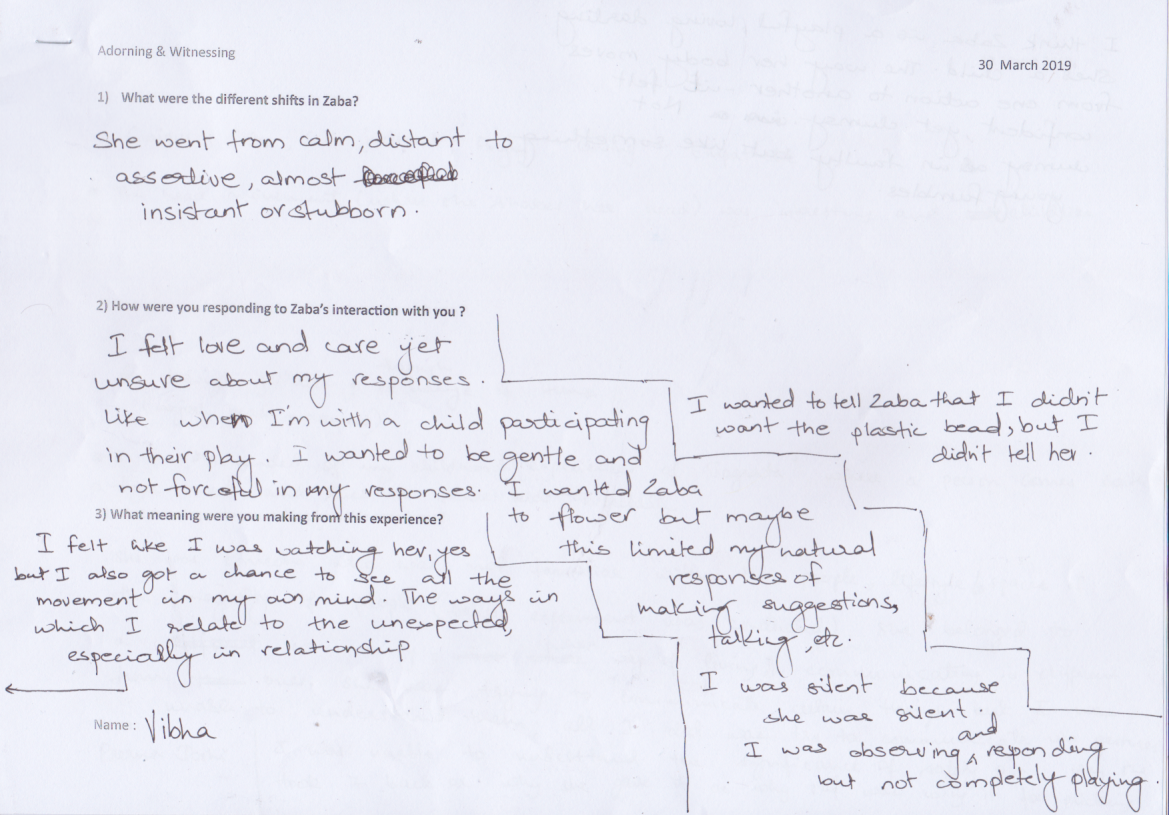 Adorning & Witnessing
30 March 2019
1) What were the different shifts in Zaba?
She went from calm, distant to
assertive, almost
insistant or stubborn.
2) How were you responding to Zaba's interaction with you ?
I felt love and care yet
unsure about my responses.
Like when I'm with a child participating
in their play. I wanted to be gentle and
not forceful in my responses. I wanted Zaba
to flower but maybe
this limited my natural
responses of
making suggestions,
talking, etc.
I was silent because
she was silent.
I was observing and responding
but not completely playing.
I wanted to tell Zaba that I didn't
want the plastic bead, but I
didn't tell her.
3) What meaning were you making from this experience?
I felt like I was watching her, yes
but I also got a chance to see all the
movement in my own mind. The ways in
which I relate to the unexpected,
especially in relationship
Name : Vibha